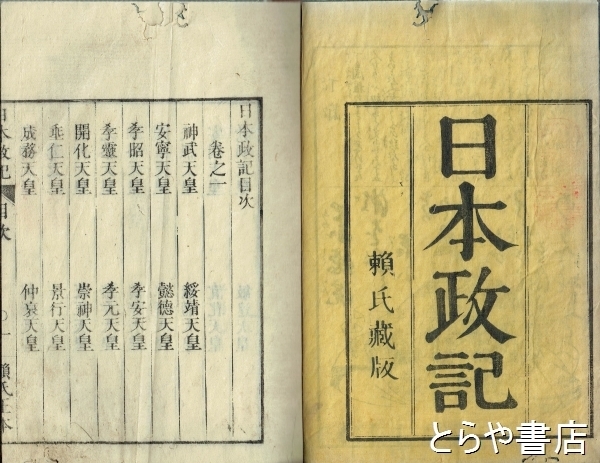 日本政記
賴氏藏版
日本政記目次
卷之一
神武天皇 綏靖天皇
安寧天皇 懿德天皇
孝昭天皇 孝安天皇
孝靈天皇 孝元天皇
開化天皇 崇神天皇
垂仁天皇 景行天皇
成務天皇 仲哀天皇
日本政記 目次 〇一 賴氏正本
とらや書店